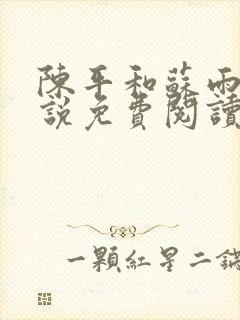 陳平和蘇雨
說免費閱讀
一顆紅星二鍋